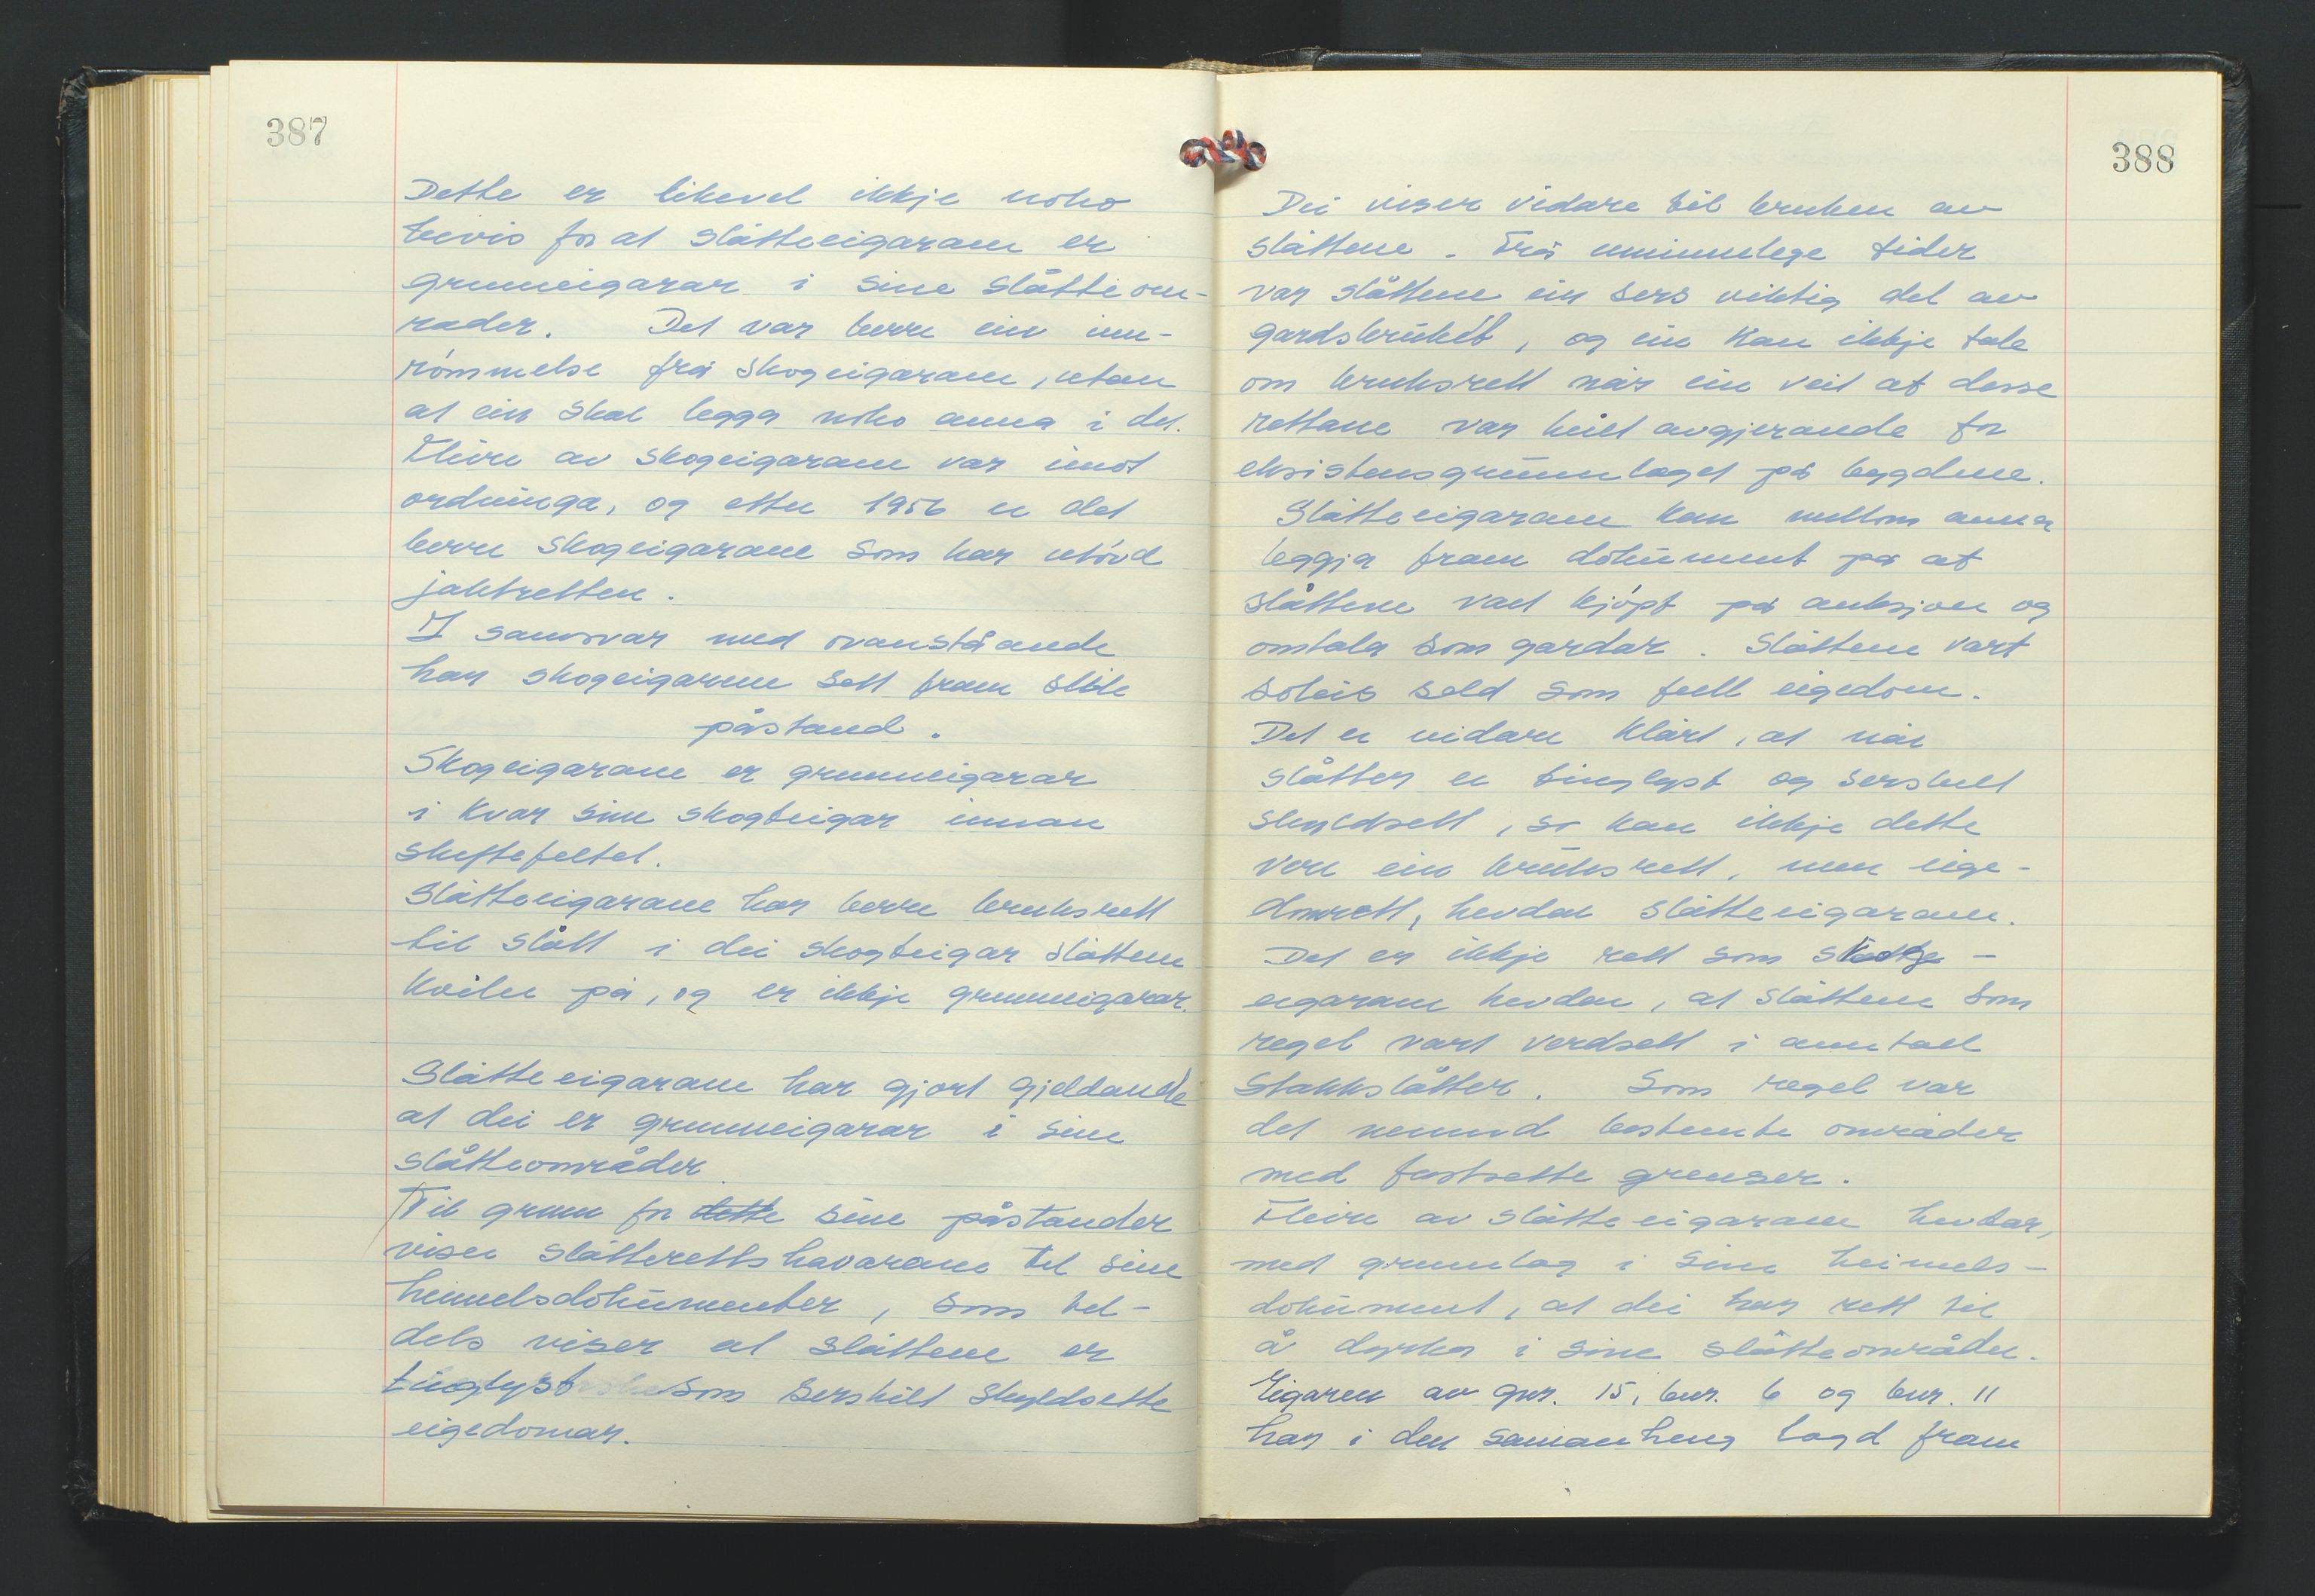 387
Dette er likevel ikkje noko
bevis for at slåtteeigarane er
grunneigarar i sine slåtteom-
råder. Det var berre ein inn-
rømmelse frå skogeigarane, utan
at ein skal legga noko anna i det.
Fleire av skogeigarane var imot
ordninga, og etter 1956 er det
berre skogeigarane som har utövd
jaktretten.
I samsvar med ovanståande
har skogeigarane sett fram slik
påstand.
Skogeigarane er grunneigarar
i kvar sine skogteigar innan
skiftefeltet.
Slåtteeigarane har berre bruksrett
til slått i dei skogteigar slåttene
kviler på, og er ikkje grunneigarar.
Slåtteeigarane har gjort gjeldande
at dei er grunneigarar i sine
slåtteområder.
Til grunn for dette sine påstander
viser slåtterettshavarane til sine
heimelsdokumenter, som til-
dels viser at slåttene er
tinglyst som serskilt skyldsette
eigedomar.
388
Dei viser vidare til bruken av
slåttene. Frå uminnelege tider
var slåttene ein sers viktig del av
gardsbruket, og ein kan ikkje tale
om bruksrett når ein veit at desse
rettane var heilt avgjerande for
eksistensgrunnlaget på bygdene.
Slåtteeigarane kan mellom anna
leggja fram dokument på at
slåttene vart kjöpt på auksjon og
omtala som gardar. Slåttene vart
soleis seld som full eigedom.
Det er vidare klårt, at når
slåtter er tinglyst og serskilt
skyldsett, so kan ikkje dette
vere ein bruksrett, men eige-
domsrett, hevdar slåtteeigarane.
Det er ikkje rett som skog-
eigarane hevdar, at slåttene som
regel vart verdsett i anntall
stakkslåtter. Som regel var
det nemnd bestemte områder
med fastsette grenser.
Fleire av slåtteeigarane hevdar,
med grunnlag i sine heimels-
dokument, at dei har rett til
å dyrka i sine slåtteområder.
Eigaren av gnr. 15, bnr. 6 og bnr. 11
har i den samanheng lagd fram